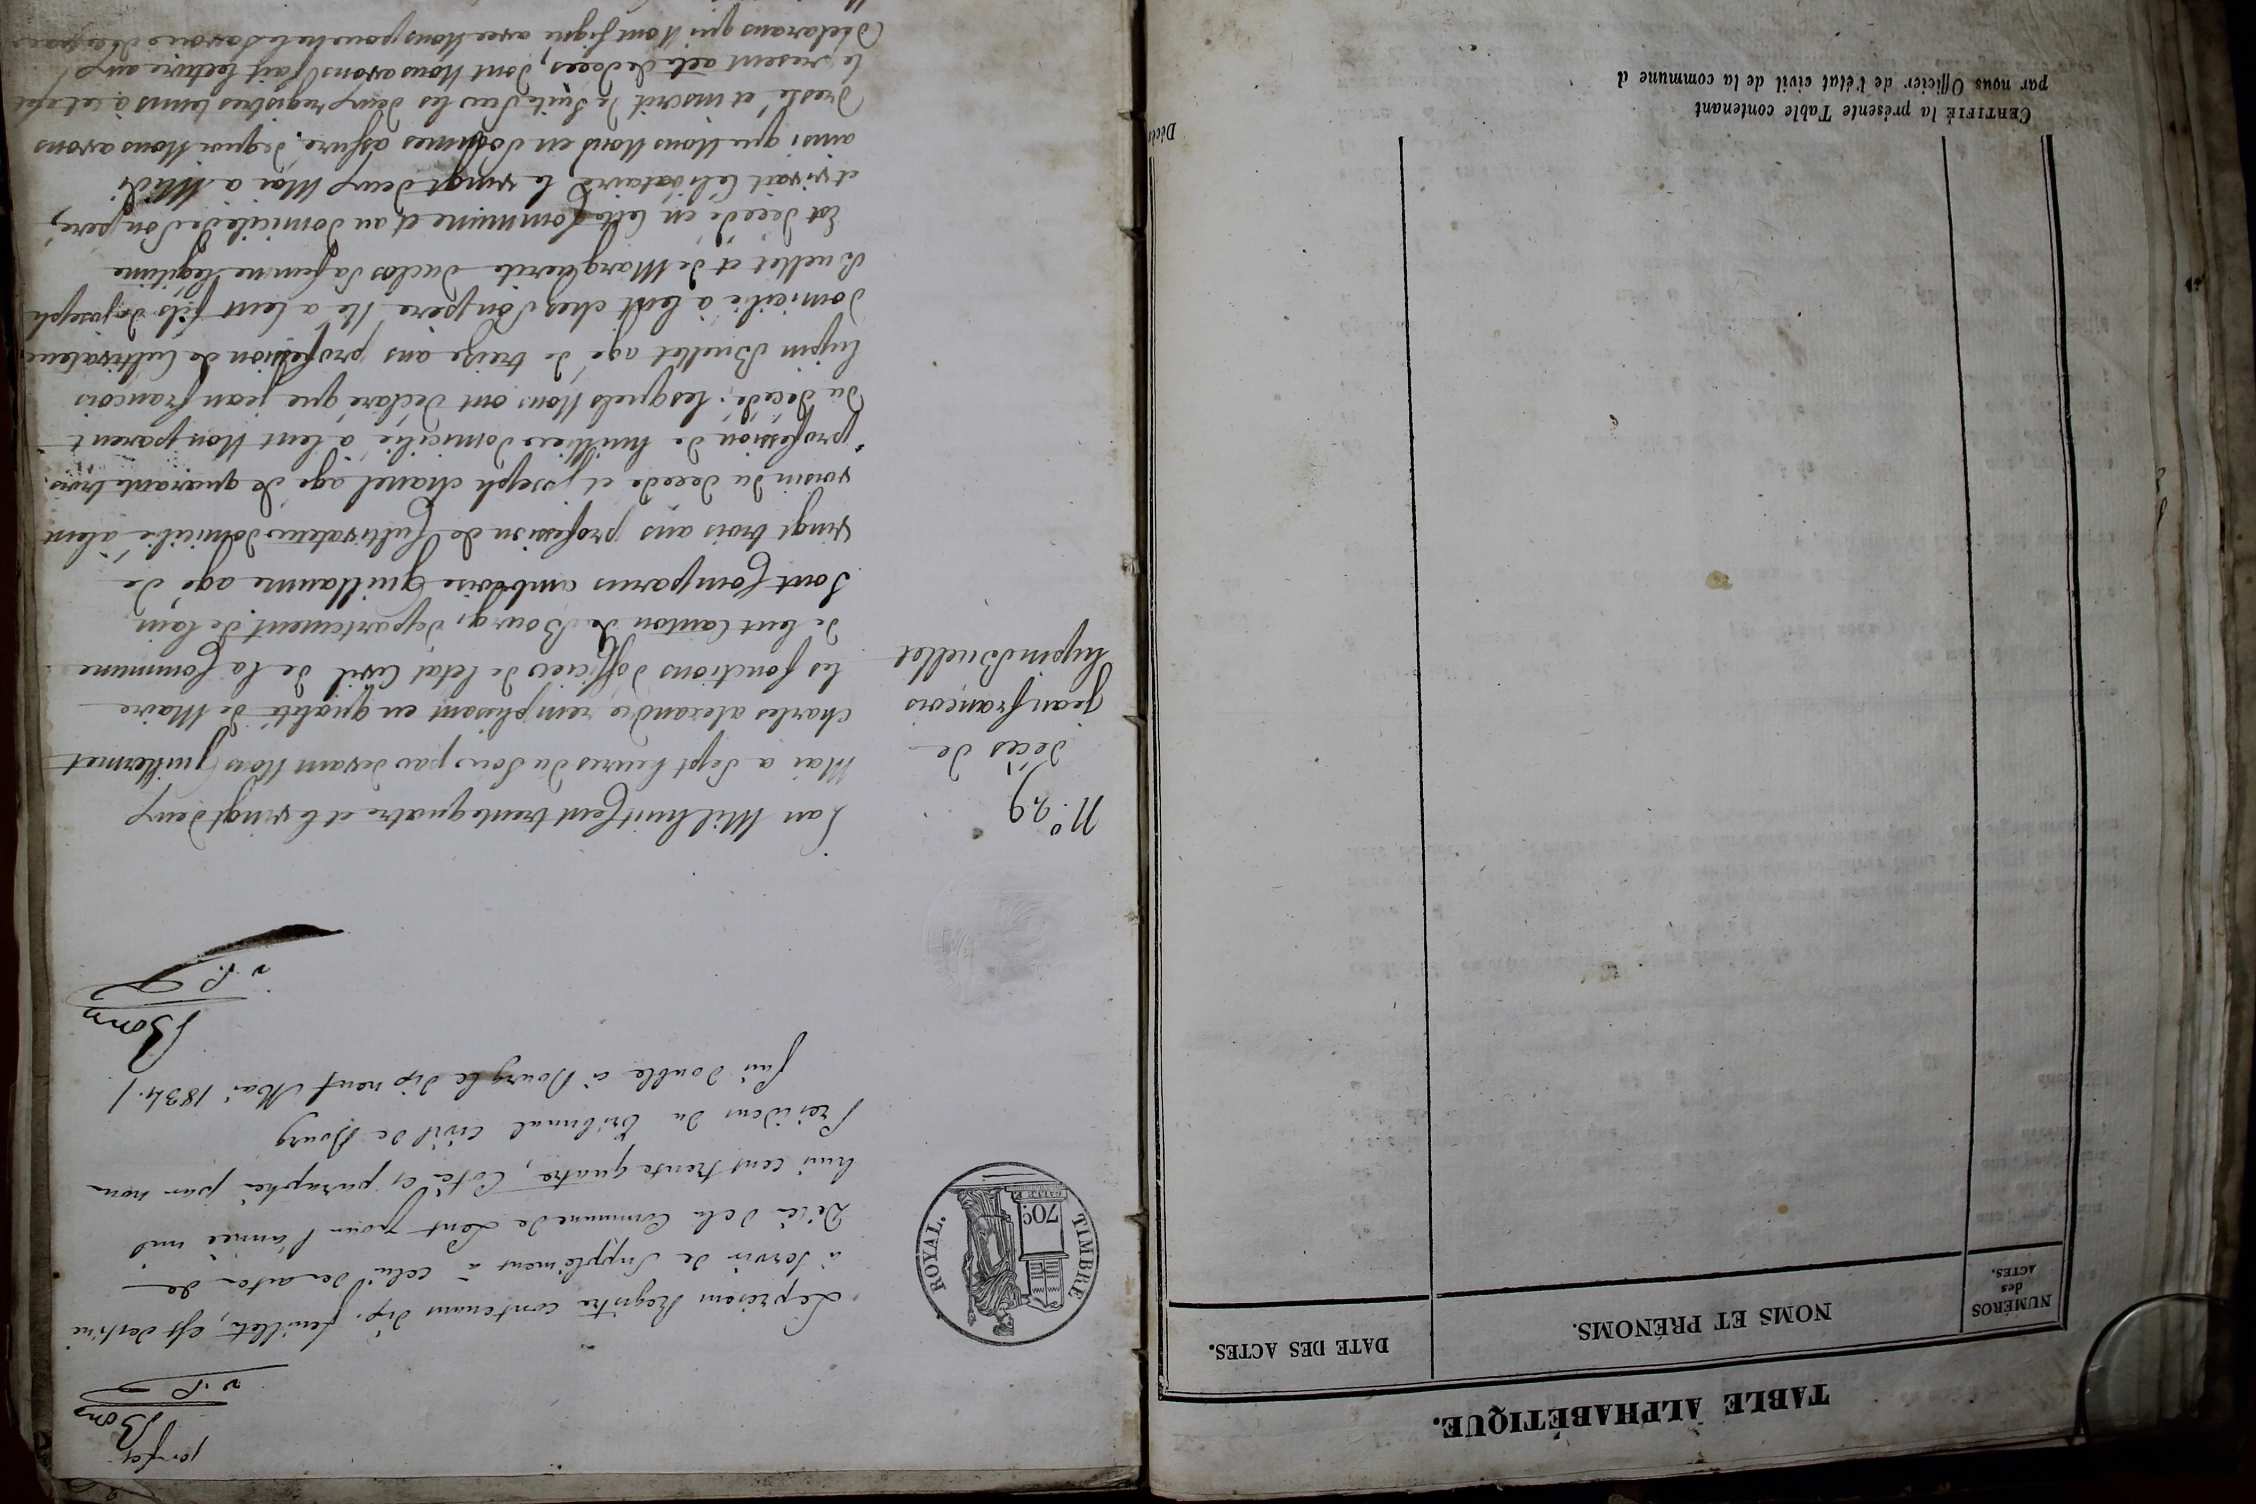 TABLE ALPHABÉTIQUE.
NUMÉROS
des
ACTES.
NOMS ET PRÉNOMS.
DATE DES ACTES.
CERTIFIÉ la présente Table contenant
par nous Officier de l'état civil de la commune d
Décès
Bon
v. P.
Le présent Registre contenant dix feuillets, est destiné
à servir de Supplément à celui des actes de
Décès de la Commune de Lent pour l'année mil
huit cent trente quatre, Coté et paraphé par nous
Président du Tribunal civil de Bourg
fait double à Bourg le dix neuf Mai 1834./
Bon
v. P.
TIMBRE ROYAL.
70c.
N.° 29
décès de
Jean françois
hypin Buellet
L'an Mil huit Cent trente quatre et le vingt deux
Mai a Sept heures du Soir par devant Nous Guillermet
charles alexandre remplissant en qualité de Maire
les fonctions d'officier de l'etat Civil de la Commune
de lent Canton de Bourg, departement de l'ain
Sont Comparus ambroise Guillaume agé de
vingt trois ans profession de Cultivateur domicilié a lent
voisin du decedé et joseph chanel agé de quarante trois
profession de huillier domicilié a lent Non parent
du décédé; lesquels Nous ont déclaré que jean francois
hypin Buellet agé de treize ans profession de Cultivateur
domicilié à lent chez Son père Né a lent fils de joseph
Buellet et de Marguerite Duclos Sa femme légitime
Est décédé en Cette Commune et au domicile de Son père,
et vivait Célibataire le vingt deux Mai a Midi
ainsi que Nous Nous en Sommes assuré. dequoi Nous avons
dressé et inscrit de Suite Sur les deux registres tenus à cet effet
le present acte de deces, dont Nous avons fait lecture aux
Declarans qui N'ont signé avec Nous pour ne le Savoir